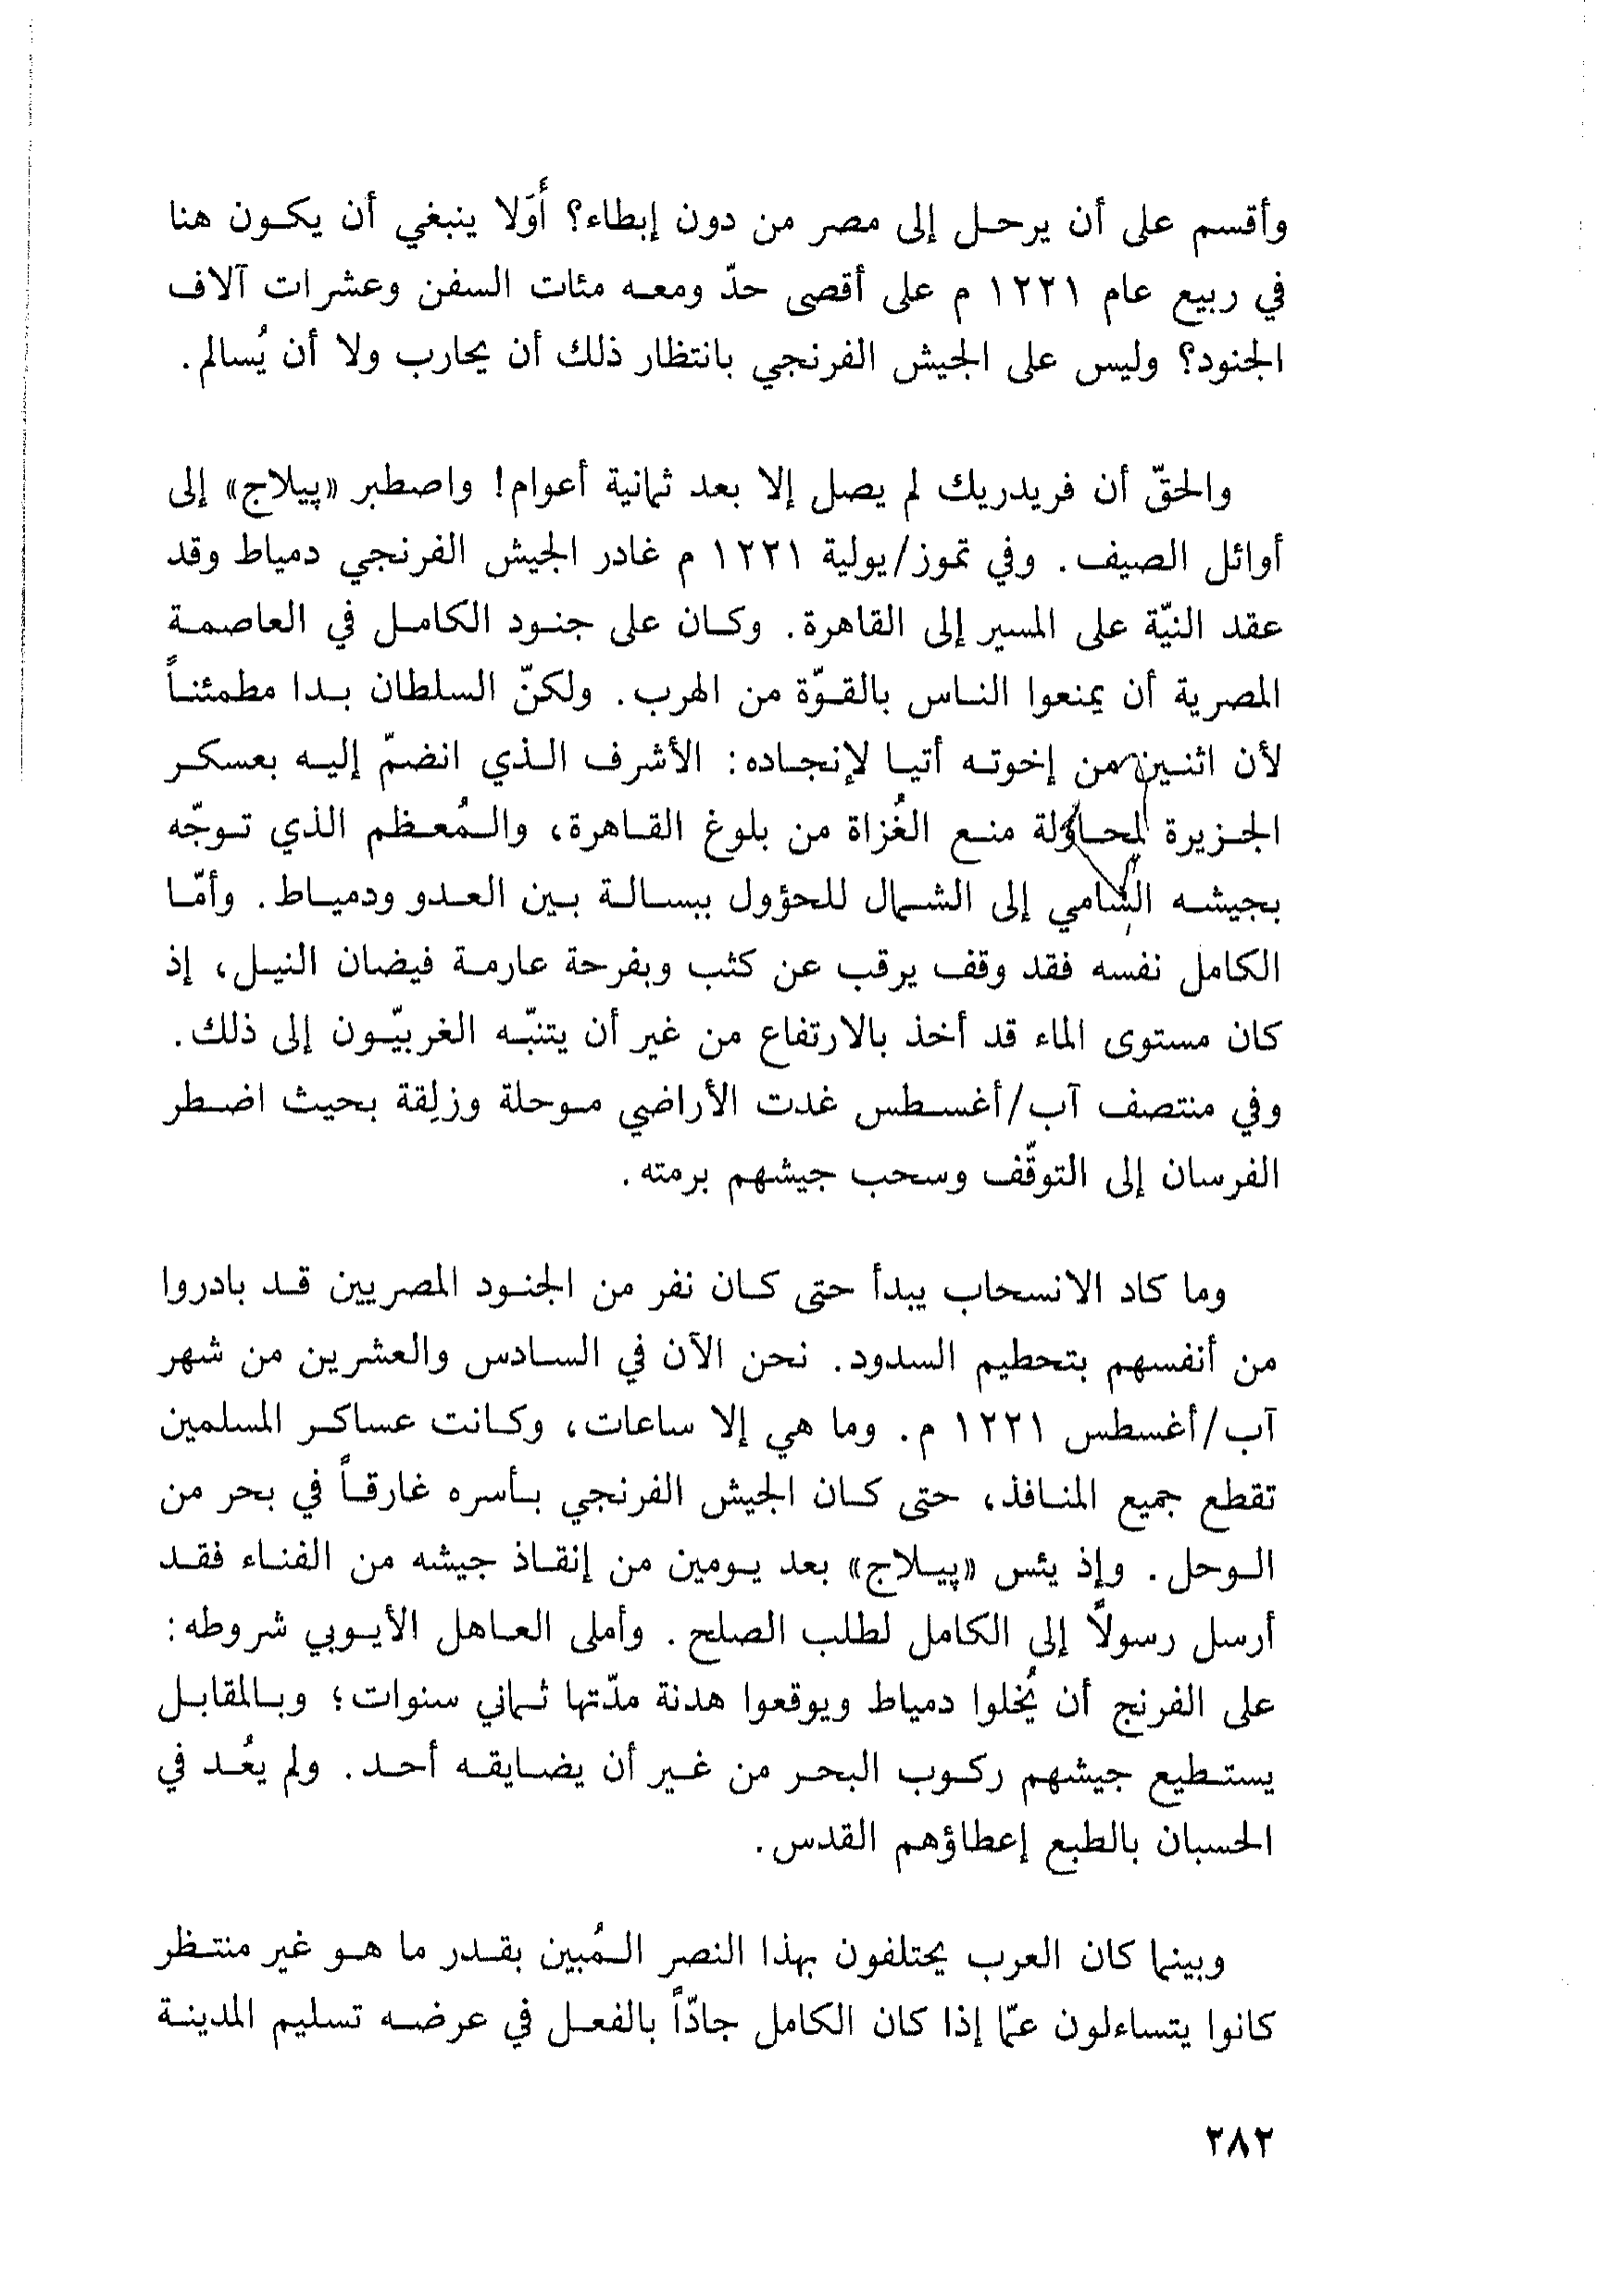 وأقسم على أن يرحل إلى مصر من دون إبطاء؟ أَوَلا ينبغي أن يكون هنا
في ربيع عام ١٢٢١ م على أقصى حدّ ومعه مئات السفن وعشرات آلاف
الجنود؟ وليس على الجيش الفرنجي بانتظار ذلك أن يحارب ولا أن يُسالم.
والحقّ أن فريدريك لم يصل إلا بعد ثمانية أعوام! واصطبر «پيلاج» إلى
أوائل الصيف. وفي تموز/يولية ١٢٢١ م غادر الجيش الفرنجي دمياط وقد
عقد النيّة على المسير إلى القاهرة. وكان على جنود الكامل في العاصمة
المصرية أن يمنعوا الناس بالقوّة من الهرب. ولكنّ السلطان بدا مطمئناً
لأن اثنين من إخوته أتيا لإنجاده: الأشرف الذي انضمّ إليه بعسكر
الجزيرة لمحاولة منع الغُزاة من بلوغ القاهرة، والمُعظم الذي توجّه
بجيشه الشامي إلى الشمال للحؤول ببسالة بين العدو ودمياط. وأمّا
الكامل نفسه فقد وقف يرقب عن كثب وبفرحة عارمة فيضان النيل، إذ
كان مستوى الماء قد أخذ بالارتفاع من غير أن يتنبّه الغربيّون إلى ذلك.
وفي منتصف آب/أغسطس غدت الأراضي موحلة وزلِقة بحيث اضطر
الفرسان إلى التوقّف وسحب جيشهم برمته.
وما كاد الانسحاب يبدأ حتى كان نفر من الجنود المصريين قد بادروا
من أنفسهم بتحطيم السدود. نحن الآن في السادس والعشرين من شهر
آب/أغسطس ١٢٢١ م. وما هي إلا ساعات، وكانت عساكر المسلمين
تقطع جميع المنافذ، حتى كان الجيش الفرنجي بأسره غارقاً في بحر من
الوحل. وإذ يئس «پيلاج» بعد يومين من إنقاذ جيشه من الفناء فقد
أرسل رسولاً إلى الكامل لطلب الصلح. وأملى العاهل الأيوبي شروطه:
على الفرنج أن يُخلوا دمياط ويوقعوا هدنة مدّتها ثماني سنوات؛ وبالمقابل
يستطيع جيشهم ركوب البحر من غير أن يضايقه أحد. ولم يعُد في
الحسبان بالطبع إعطاؤهم القدس.
وبينما كان العرب يحتلفون بهذا النصر المُبين بقدر ما هو غير منتظر
كانوا يتساءلون عمّا إذا كان الكامل جادّاً بالفعل في عرضه تسليم المدينة
٢٨٢